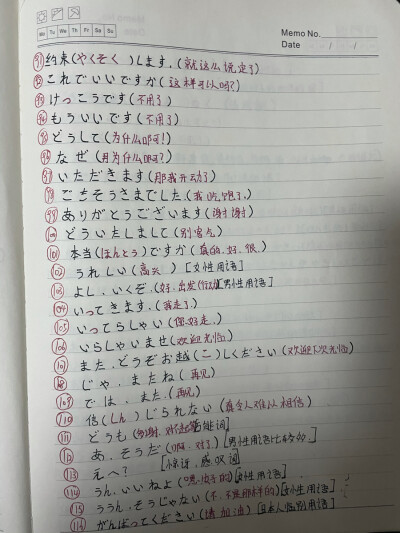 Memo No.
Mo Tu We Th Fr Sa Su
Date / /
91 约束(やくそく)します.(就这么说定了)
92 これでいいですか(这样可以吗?)
93 けっこうです(不用了)
94 もういいです(不用了)
95 どうして(为什么呢可!)
96 なぜ(为什么呢可?)
97 いただきます(那我开动了)
98 ごちそうさまでした(我吃饱了.)
99 ありがとうございます(谢谢)
100 どういたしまして(别客气)
101 本当(ほんとう)ですか(真的.好.很.)
102 うれしい(高兴)[女性用语]
103 よし.いくぞ.(好.出发(行动)[男性用语]
104 いってきます.(我走了.)
105 いってらしゃい(您好走.)
106 いらしゃいませ(欢迎光临)
107 また.どうぞお越(こ)しください(欢迎下次光临)
108 じゃ.またね(再见)
109 では.また.(再见)
110 信(しん)じられない(真令人难以相信)
111 どうも(多谢.对不起)[万能词]
112 あ.そうだ(啊.对了)[男性用语比较多.]
113 えへ?[惊讶.感叹词]
114 うん.いいねよ(嗯.(女性用语]
115 ううん.そうじゃない(不.不是那样的)[女性用语]
116 がんばってください(请加油)[日本人临别用语]